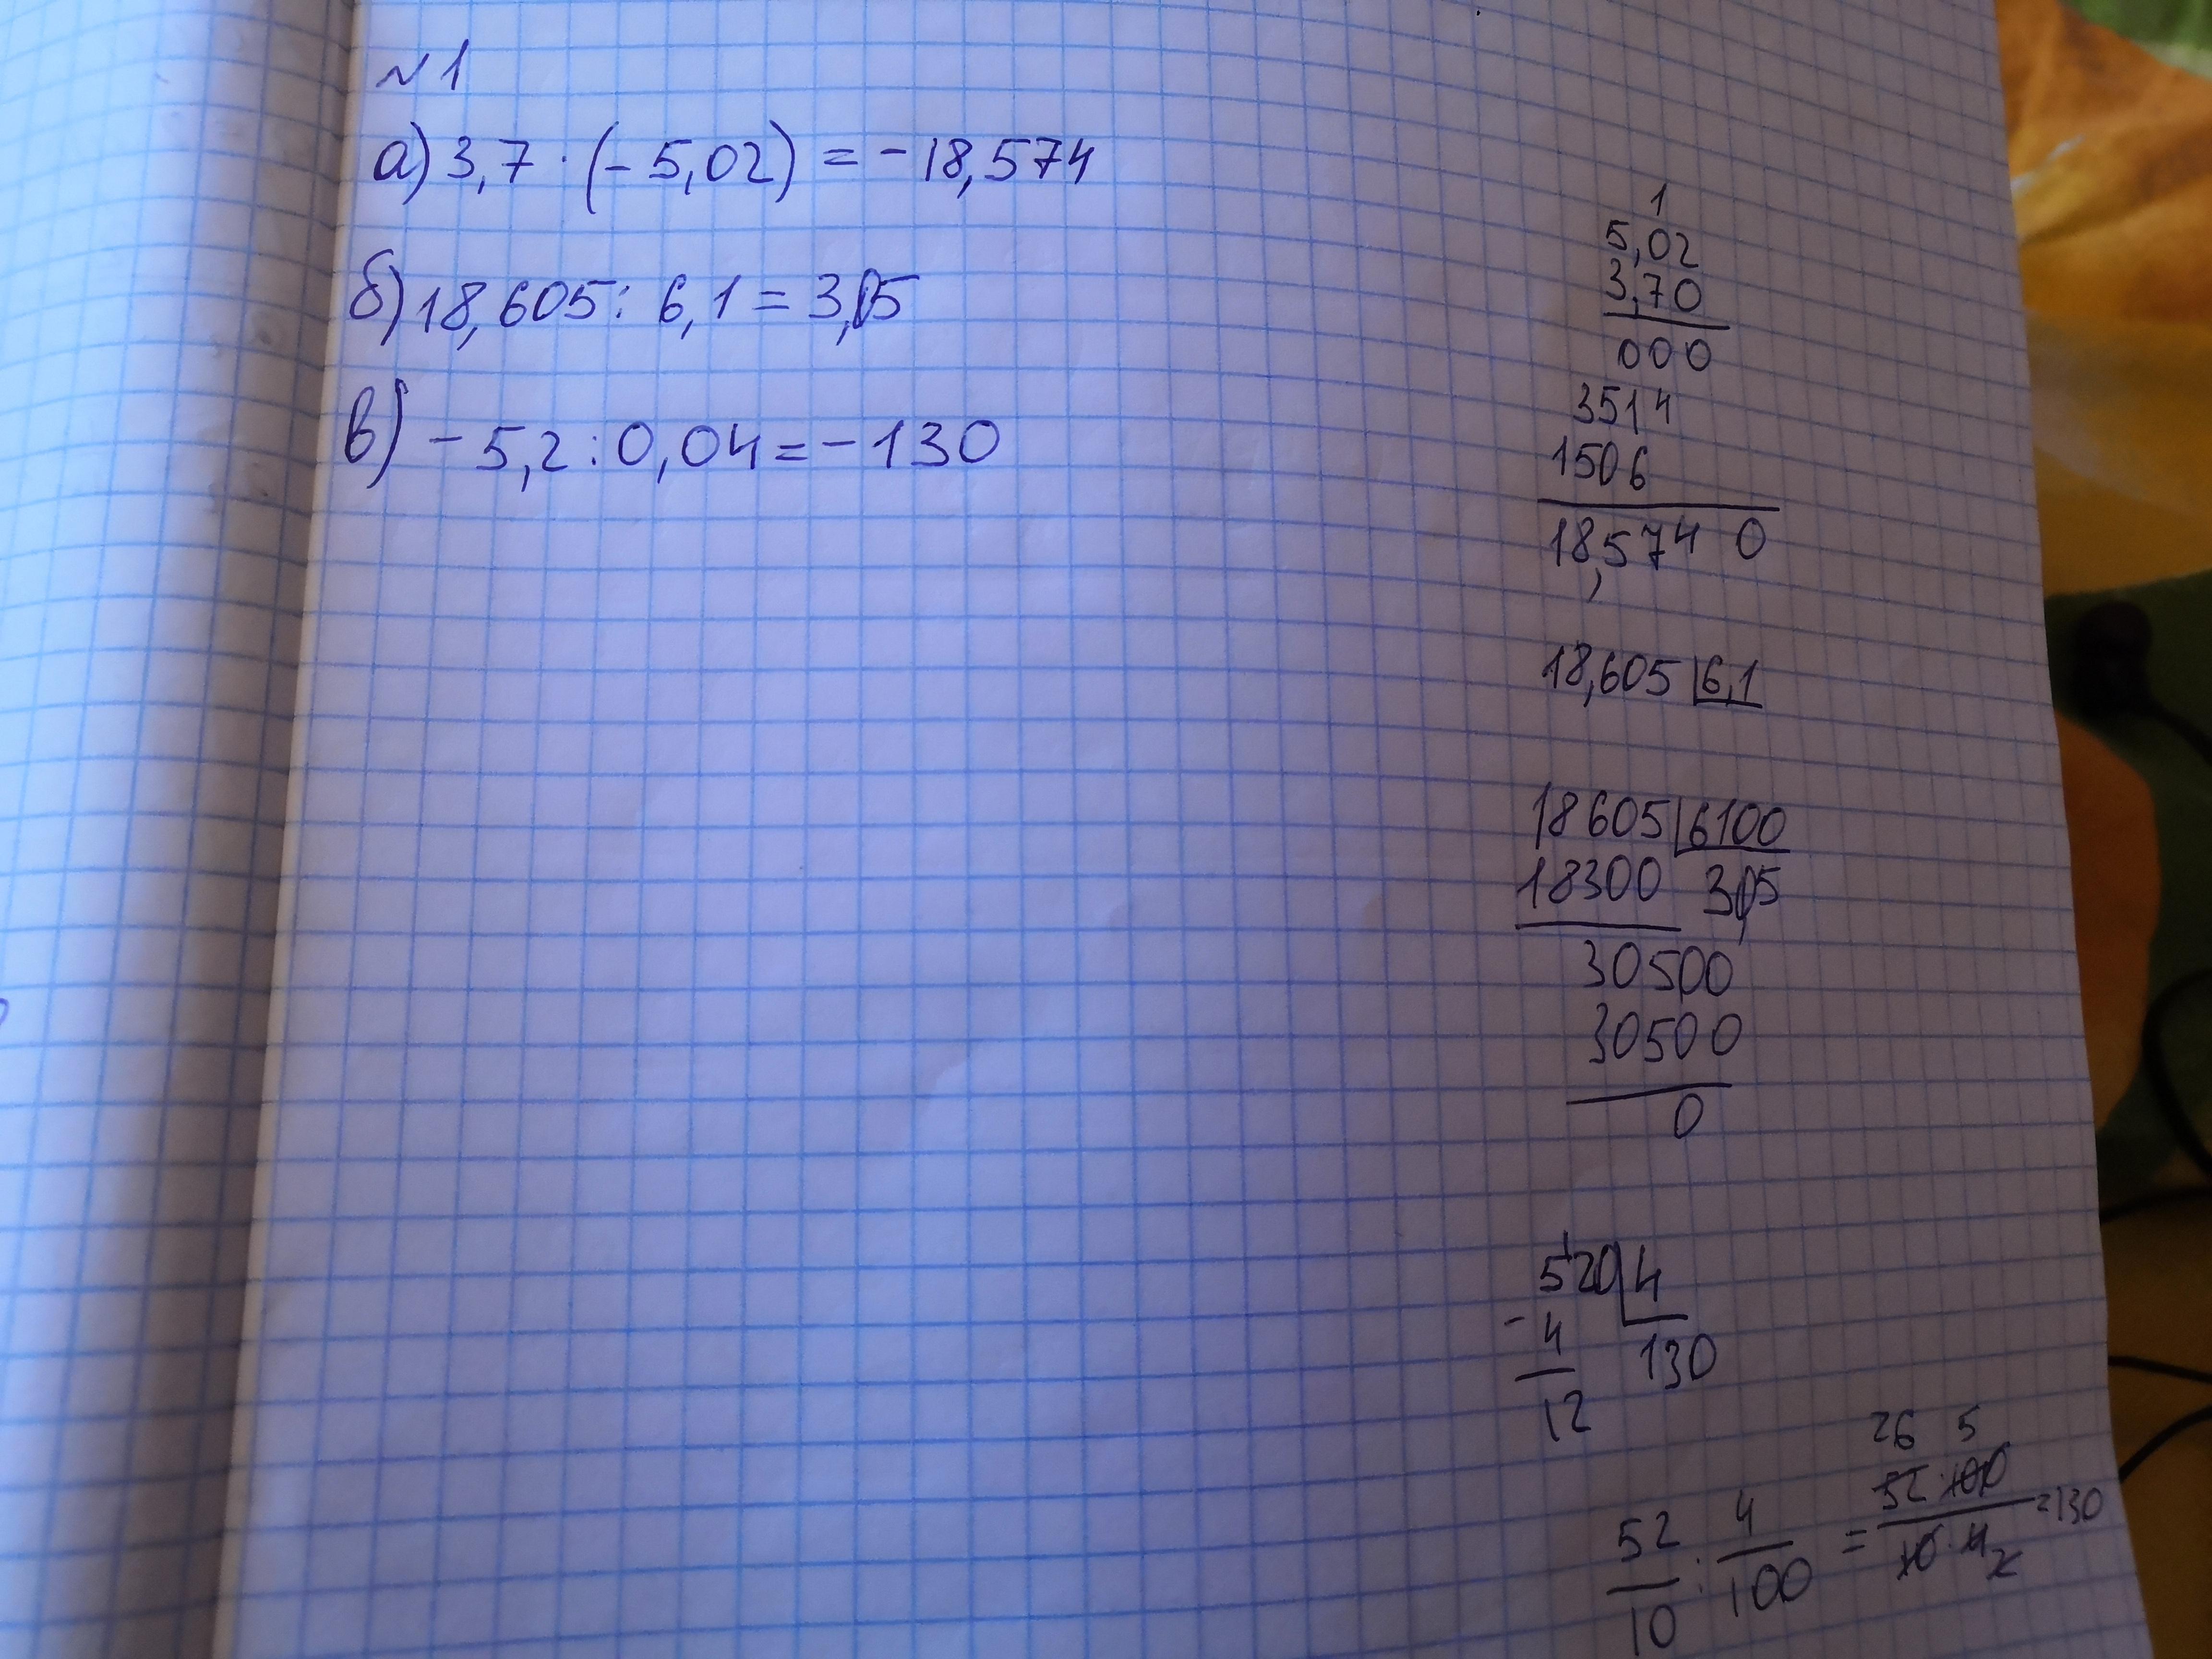 №1
а) 3,7 · (- 5,02) = - 18,574
б) 18,605 : 6,1 = 3,05
в) - 5,2 : 0,04 = - 130
1
5,02
3,70
000
3514
1506
18,574 0
18,605 6,1
18605 6100
18300 3,05
30500
30500
0
1
520 4
- 4 130
12
26 5
52/10 : 4/100 = 52·100/10·4 = 130
2